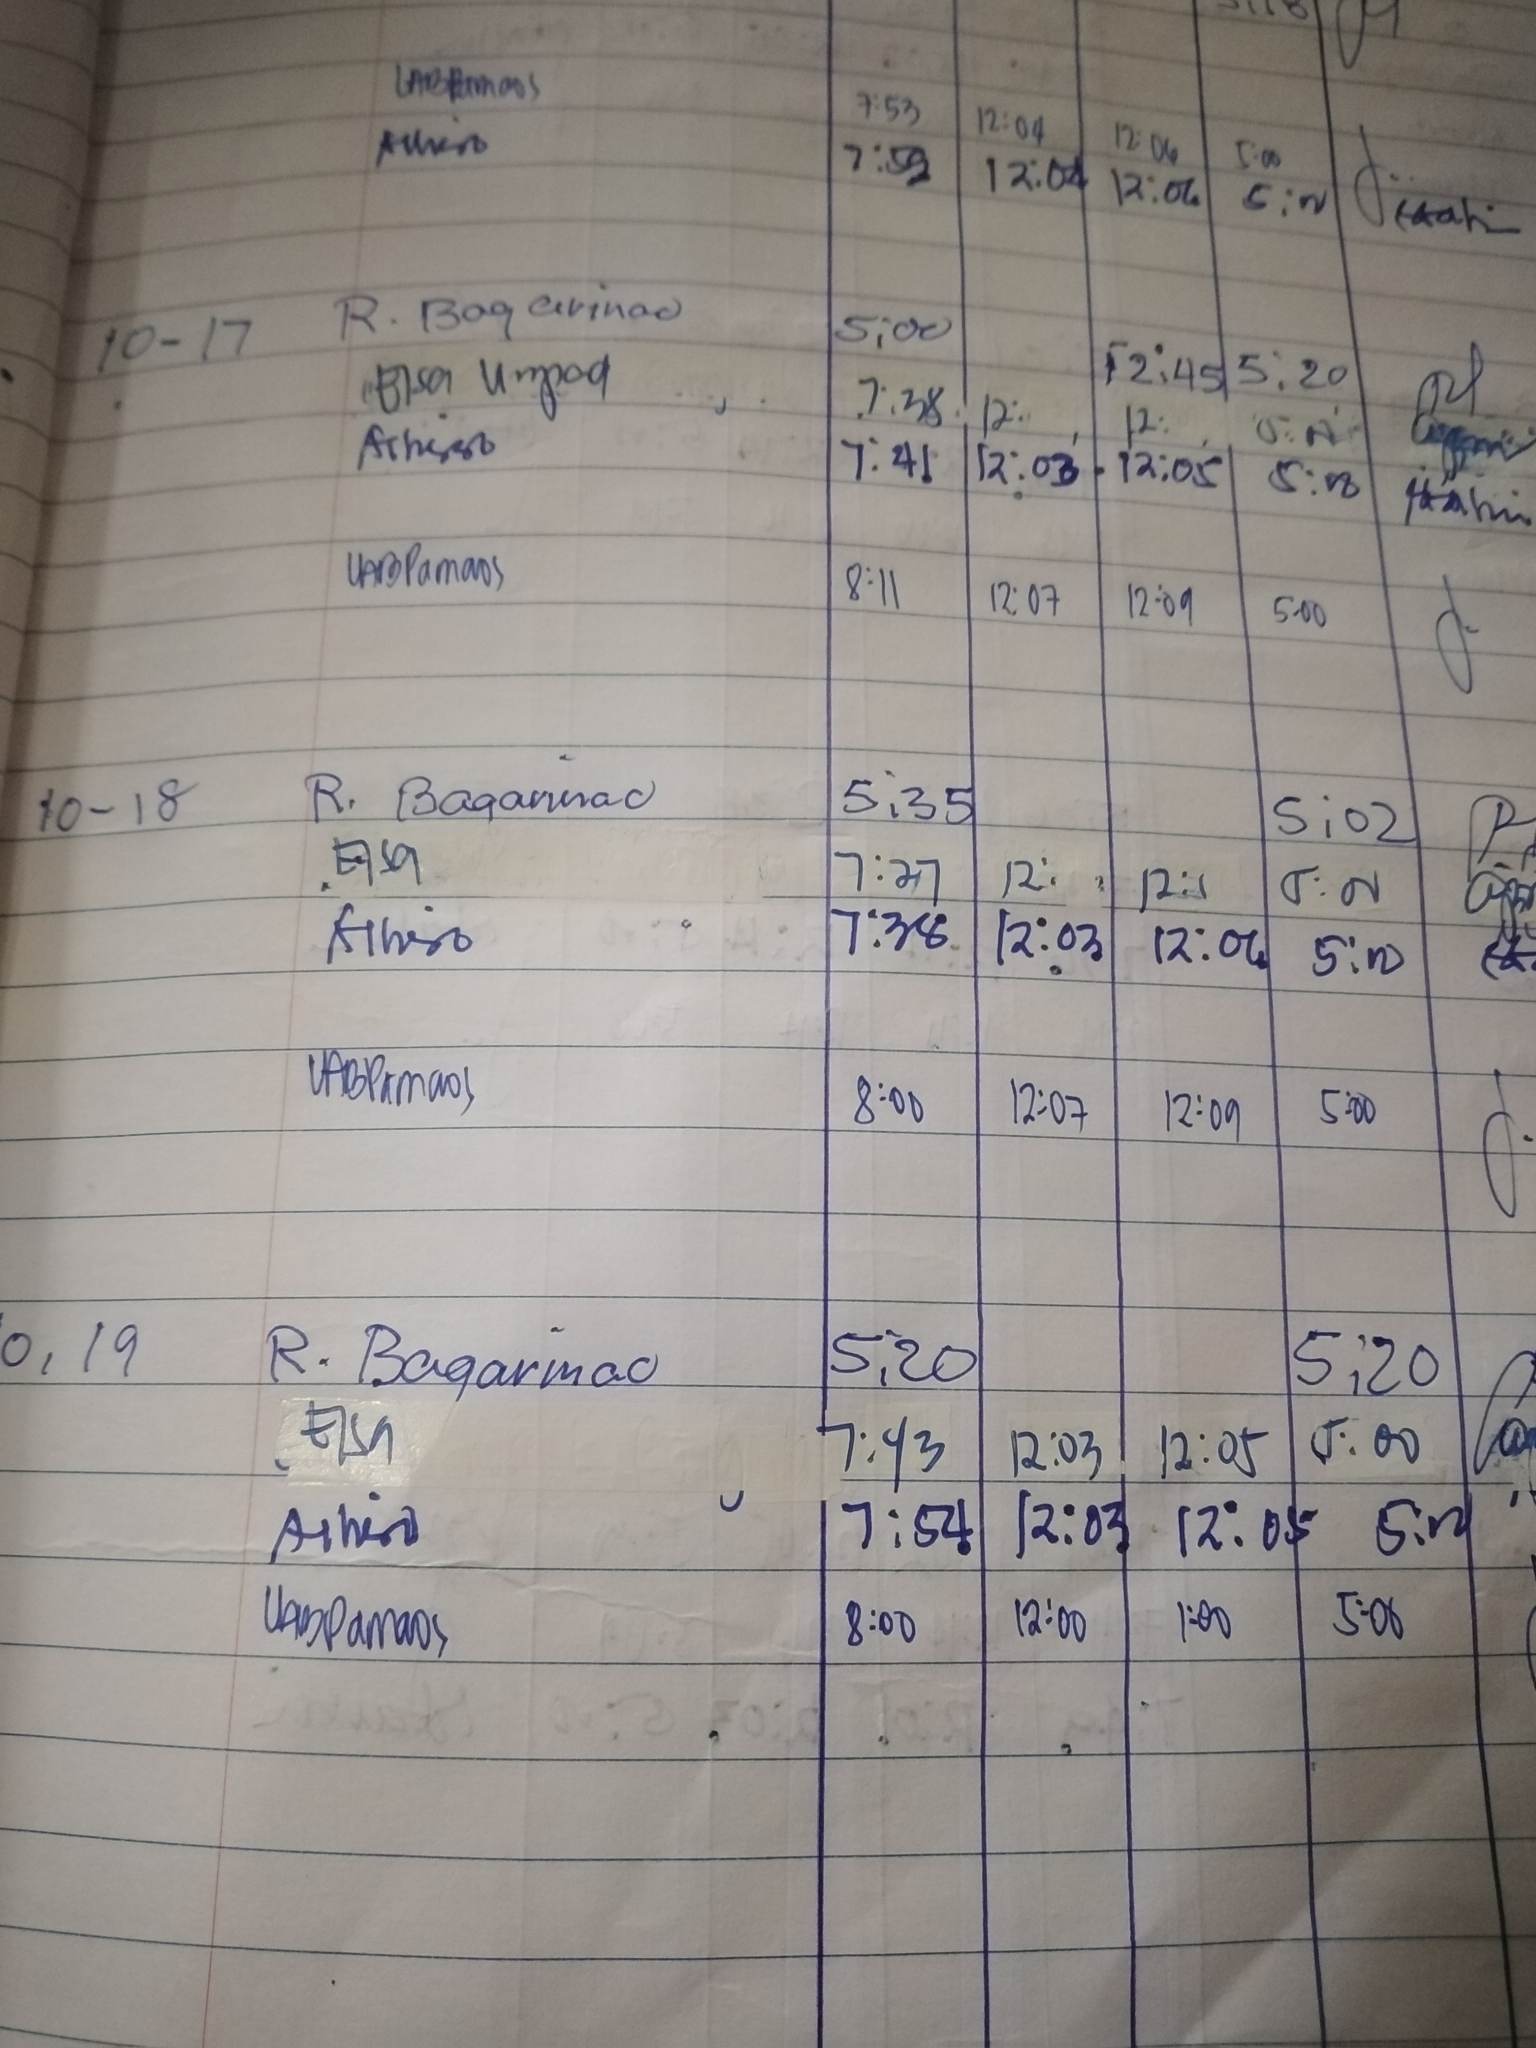 7:53 12:04 12:06 5:00
7:59 12:04 12:06 5:00
10-17 R. Bagarinao 5:00 12:45 5:20
Elsa Umpad 7:38 12: 12: 5:00
7:41 12:03 12:05 5:00
UABPamaos 8:11 12:07 12:09 5:00
10-18 R. Bagarinao 5:35 5:02
Elsa 7:27 12: 12: 5:00
7:38 12:03 12:06 5:00
UABPamaos 8:00 12:07 12:09 5:00
0, 19 R. Bagarinao 5:20 5:20
Elsa 7:43 12:03 12:05 5:00
7:54 12:03 12:05 5:00
UABPamaos 8:00 12:00 1:00 5:00